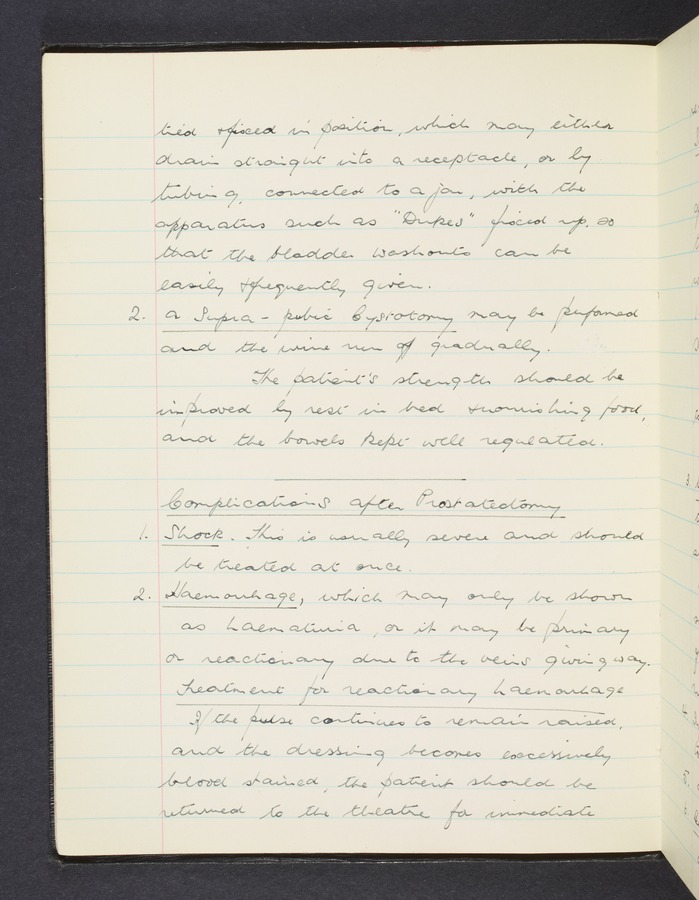 tied & fixed in position, which may either
drain straight into a receptacle, or by
tubing, connected to a jar, with the
apparatus such as "Dukes" fixed up, so
that the bladder washouts can be
easily & frequently given.
2. A Supra - pubic Cystotomy may be performed
and the urine run off gradually.
The patient's strength should be
improved by rest in bed & nourishing food,
and the bowels kept well regulated.
Complications after Prostatectomy
1. Shock. This is usually severe and should
be treated at once.
2. Haemorrhage, which may only be shown
as haematuria, or it may be primary
or reactionary due to the veins giving way.
Treatment for reactionary haemorrhage
If the pulse continues to remain raised,
and the dressing becomes excessively
blood stained, the patient should be
returned to the theatre for immediate